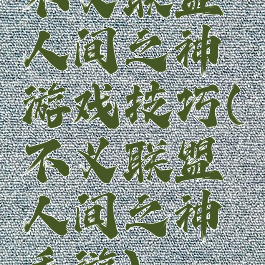 不义联盟
人间之神
游戏技巧(
不义联盟
人间之神
手游)